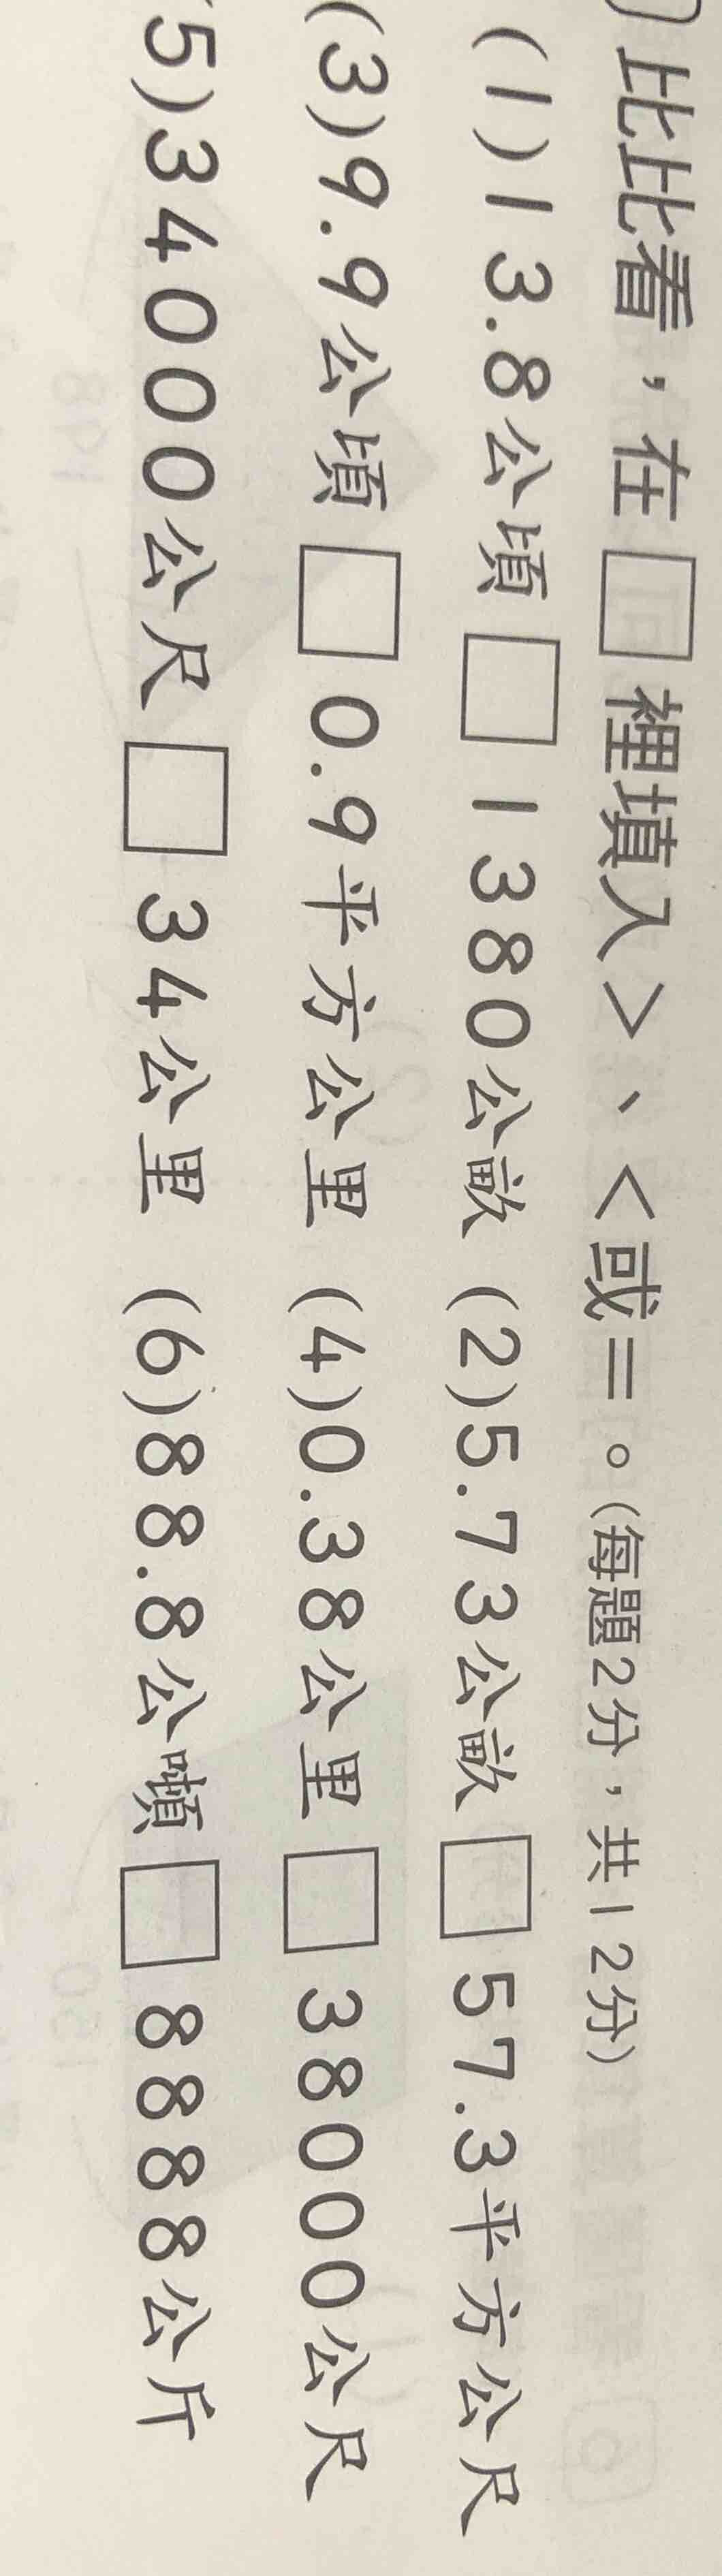 比比看，在□裡填入＞、＜或＝。(每題2分，共12分)
(1)13.8公頃□1380公畝 (2)5.73公畝□57.3平方公尺
(3)9.9公頃□0.9平方公里 (4)0.38公里□38000公尺
5)34000公尺□34公里 (6)88.8公噸□8888公斤